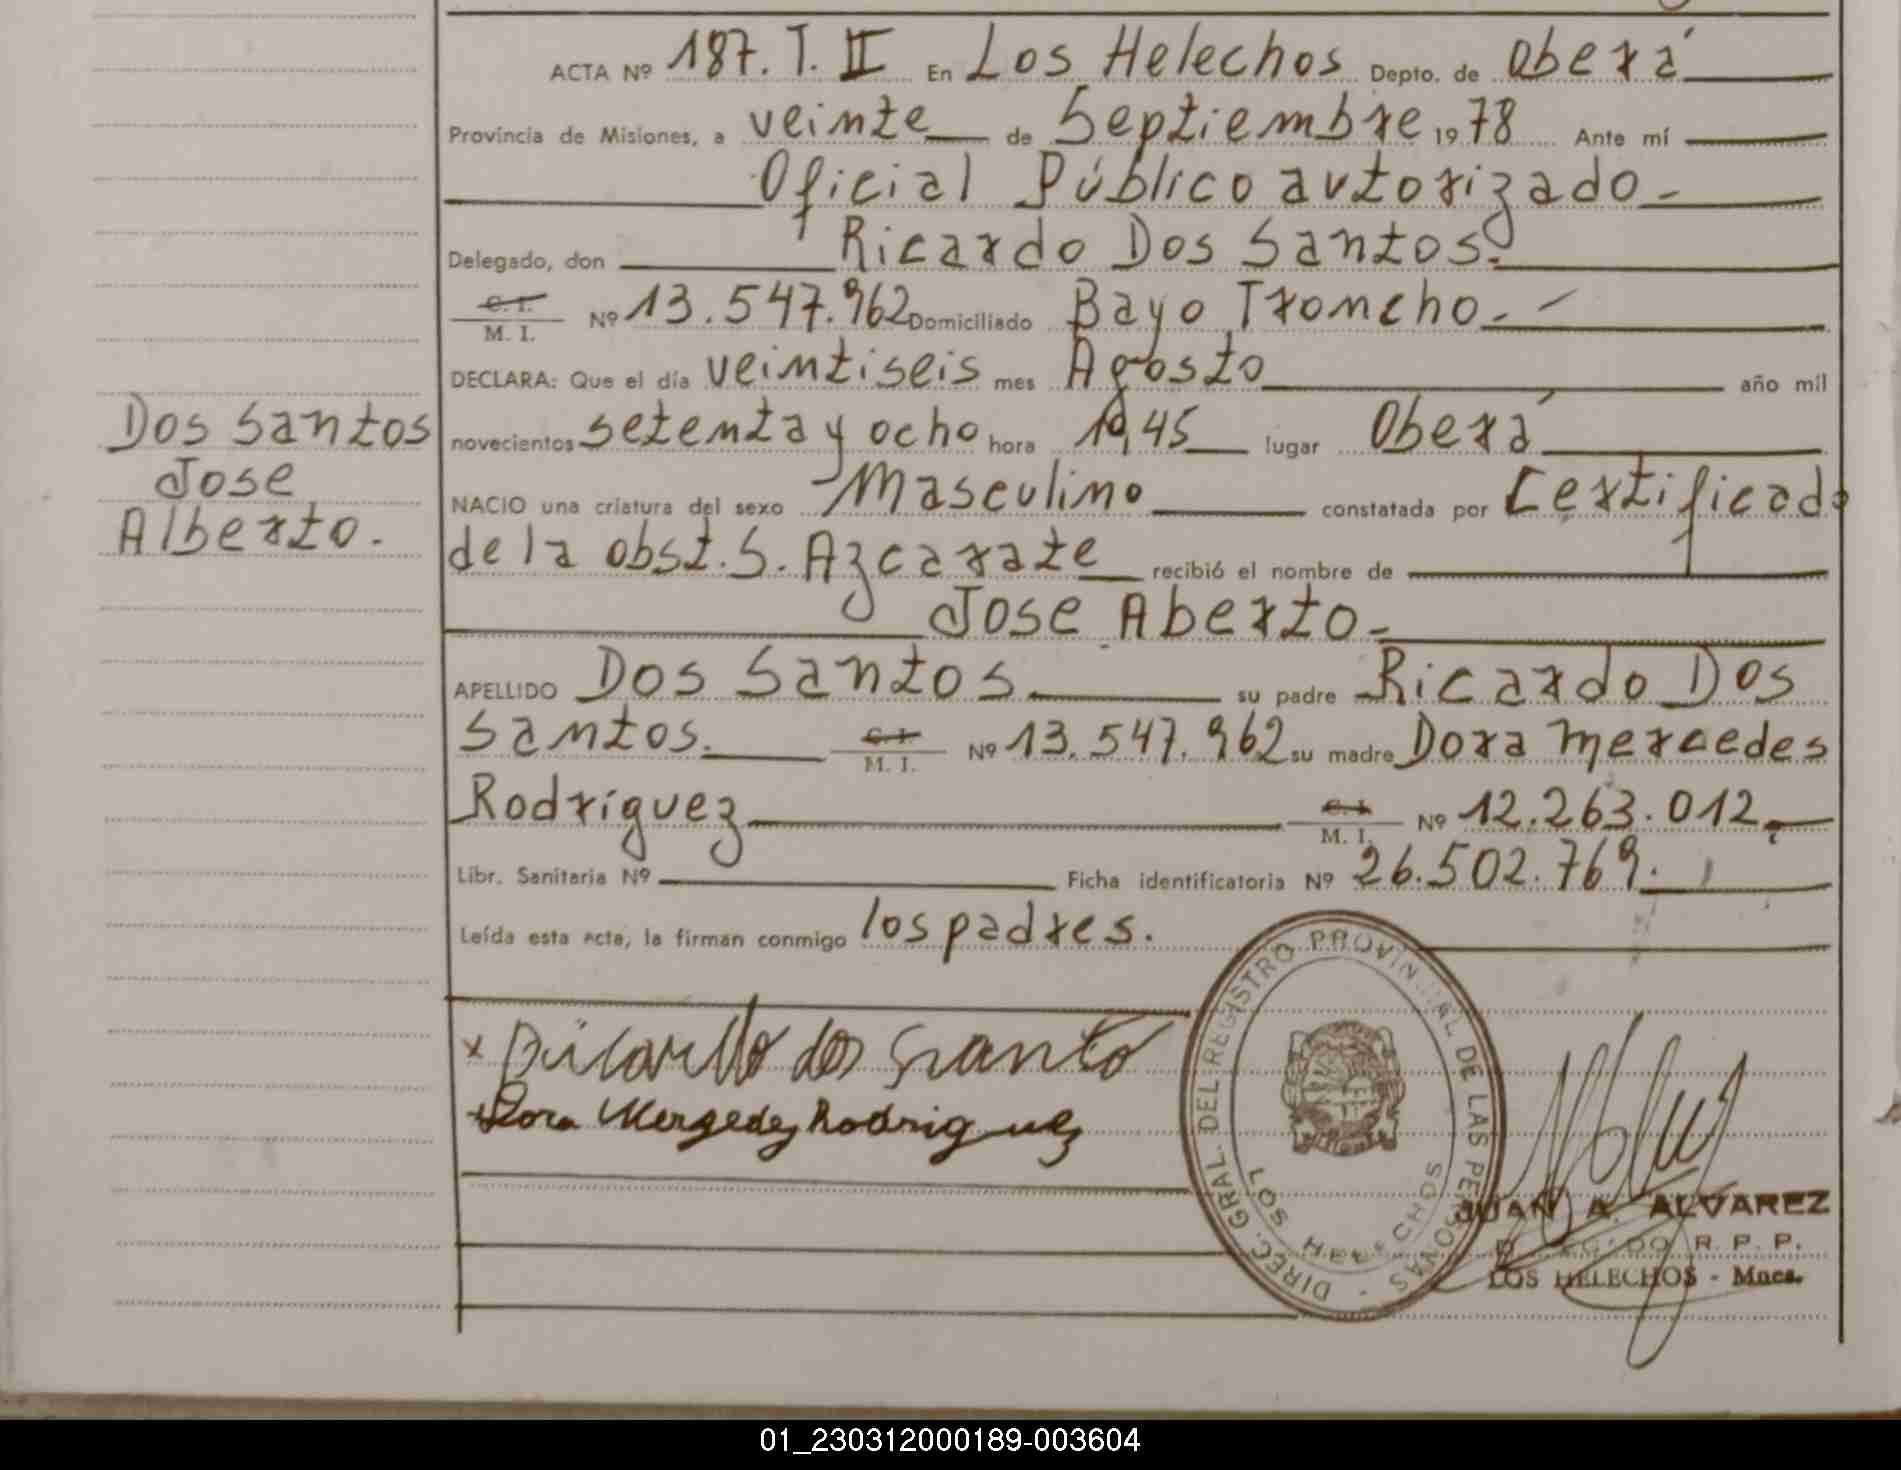 ACTA Nº 187. T. II En Los Helechos Depto. de Oberá
Provincia de Misiones, a veinte de Septiembre 1978 Ante mí
Oficial Público autorizado -
Delegado, don Ricardo Dos Santos.
C. I. / M. I. Nº 13.547.962 Domiciliado Bayo Troncho. -
DECLARA: Que el día veintiseis mes Agosto año mil
novecientos setenta y ocho hora 10,45 lugar Oberá
NACIO una criatura del sexo Masculino constatada por Certificado
de la obst. S. Azcarate recibió el nombre de
Jose Aberto. -
APELLIDO Dos Santos su padre Ricardo Dos
Santos. C. I. / M. I. Nº 13.547.962 su madre Dora Mercedes
Rodríguez C. I. / M. I. Nº 12.263.012.
Libr. Sanitaria Nº Ficha identificatoria Nº 26.502.769.
Leída esta acta, la firman conmigo los padres.
Dos Santos
Jose
Alberto.
x Ricardo dos Santo
x Dora Mergedez Rodriguez
DIREC. GRAL. DEL REGISTRO PROVINCIAL DE LAS PERSONAS -
LOS HELECHOS
JUAN A. ALVAREZ
R. P. P.
LOS HELECHOS - Mnes.
01_230312000189-003604